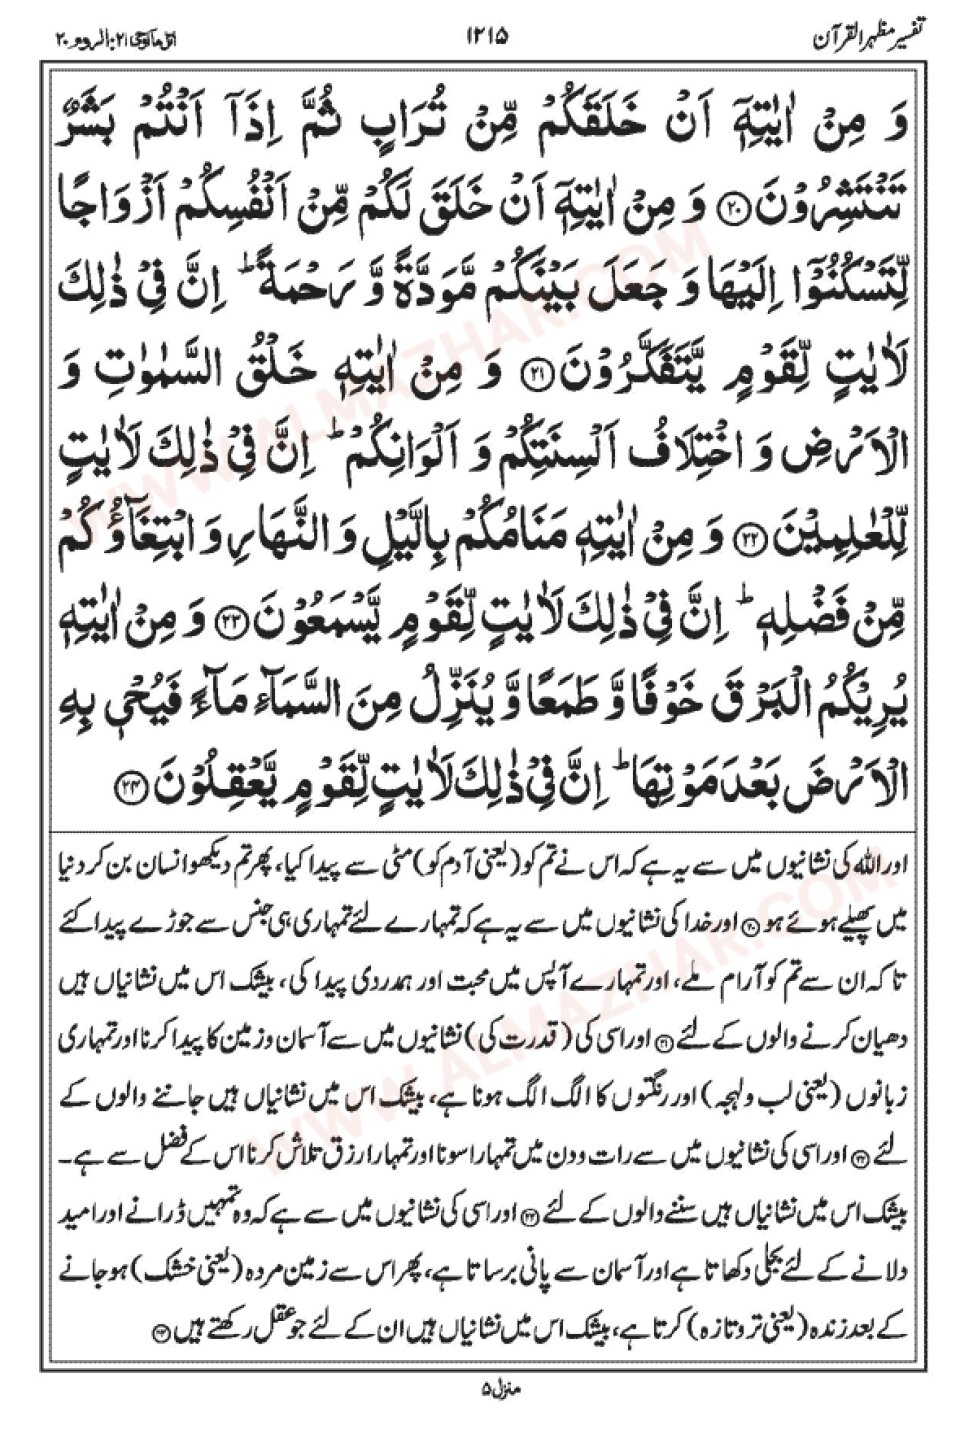 تفسیر مظہر القرآن ۱۲۱۵ اتل ما اوحی ۲۱: الروم ۳۰
وَ مِنْ اٰیٰتِهٖۤ اَنْ خَلَقَكُمْ مِّنْ تُرَابٍ ثُمَّ اِذَاۤ اَنْتُمْ بَشَرٌ
تَنْتَشِرُوْنَ ﴿۲۰﴾ وَ مِنْ اٰیٰتِهٖۤ اَنْ خَلَقَ لَكُمْ مِّنْ اَنْفُسِكُمْ اَزْوَاجًا
لِّتَسْكُنُوْۤا اِلَیْهَا وَ جَعَلَ بَیْنَكُمْ مَّوَدَّةً وَّ رَحْمَةً ؕ اِنَّ فِیْ ذٰلِكَ
لَاٰیٰتٍ لِّقَوْمٍ یَّتَفَكَّرُوْنَ ﴿۲۱﴾ وَ مِنْ اٰیٰتِهٖ خَلْقُ السَّمٰوٰتِ وَ
الْاَرْضِ وَ اخْتِلَافُ اَلْسِنَتِكُمْ وَ اَلْوَانِكُمْ ؕ اِنَّ فِیْ ذٰلِكَ لَاٰیٰتٍ
لِّلْعٰلِمِیْنَ ﴿۲۲﴾ وَ مِنْ اٰیٰتِهٖ مَنَامُكُمْ بِالَّیْلِ وَ النَّهَارِ وَ ابْتِغَآؤُكُمْ
مِّنْ فَضْلِهٖ ؕ اِنَّ فِیْ ذٰلِكَ لَاٰیٰتٍ لِّقَوْمٍ یَّسْمَعُوْنَ ﴿۲۳﴾ وَ مِنْ اٰیٰتِهٖ
یُرِیْكُمُ الْبَرْقَ خَوْفًا وَّ طَمَعًا وَّ یُنَزِّلُ مِنَ السَّمَآءِ مَآءً فَیُحْیٖ بِهِ
الْاَرْضَ بَعْدَ مَوْتِهَا ؕ اِنَّ فِیْ ذٰلِكَ لَاٰیٰتٍ لِّقَوْمٍ یَّعْقِلُوْنَ ﴿۲۴﴾
اور اللہ کی نشانیوں میں سے یہ ہے کہ اس نے تم کو (یعنی آدم کو) مٹی سے پیدا کیا، پھر تم دیکھو انسان بن کر دنیا
میں پھیلے ہوئے ہو ﴿۲۰﴾ اور خدا کی نشانیوں میں سے یہ ہے کہ تمہارے لئے تمہاری ہی جنس سے جوڑے پیدا کئے
تاکہ ان سے تم کو آرام ملے، اور تمہارے آپس میں محبت اور ہمدردی پیدا کی، بیشک اس میں نشانیاں ہیں
دھیان کرنے والوں کے لئے ﴿۲۱﴾ اور اسی کی (قدرت کی) نشانیوں میں سے آسمان و زمین کا پیدا کرنا اور تمہاری
زبانوں (یعنی لب و لہجہ) اور رنگتوں کا الگ الگ ہونا ہے، بیشک اس میں نشانیاں ہیں جاننے والوں کے
لئے ﴿۲۲﴾ اور اسی کی نشانیوں میں سے رات و دن میں تمہارا سونا اور تمہارا رزق تلاش کرنا اس کے فضل سے ہے۔
بیشک اس میں نشانیاں ہیں سننے والوں کے لئے ﴿۲۳﴾ اور اسی کی نشانیوں میں سے ہے کہ وہ تمہیں ڈرانے اور امید
دلانے کے لئے بجلی دکھاتا ہے اور آسمان سے پانی برساتا ہے، پھر اس سے زمین مردہ (یعنی خشک) ہو جانے
کے بعد زندہ (یعنی تر و تازہ) کرتا ہے، بیشک اس میں نشانیاں ہیں ان کے لئے جو عقل رکھتے ہیں ﴿۲۴﴾
منزل ۵
WWW.ALMAZHAR.COM
WWW.ALMAZHAR.COM